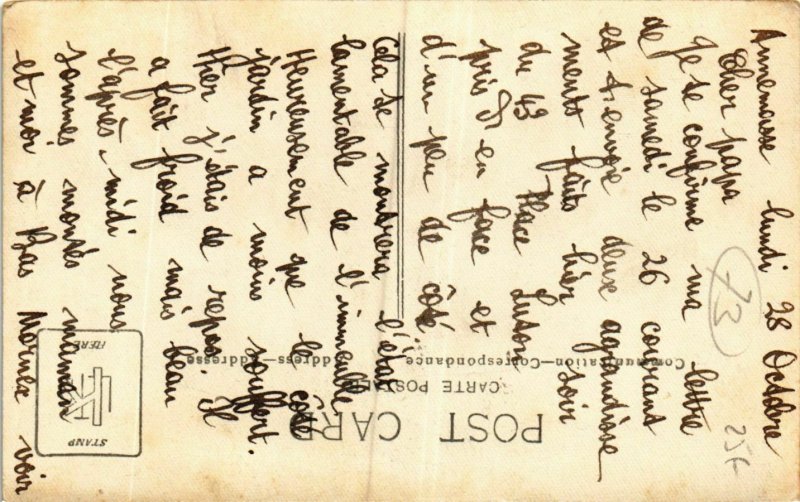 Annemasse lundi 28 Octobre
Cher papa
Je te confirme ma lettre
de samedi le 26 courant
et t'envoie deux agrandisse
ments faits hier soir
du 43 Place Luton
pris d'en face et
d'un peu de côté
Cela te montrera l'état
lamentable de l'immeuble
Heureusement que le côté
jardin a moins souffert.
Hier j'étais de repos. Il
a fait froid mais beau
l'après-midi nous
sommes montés maman
et moi à Bas Mornex voir
73
POST CARD
CARTE POSTALE
Communication—Correspondance
Address—Addresse
STAMP
HERE